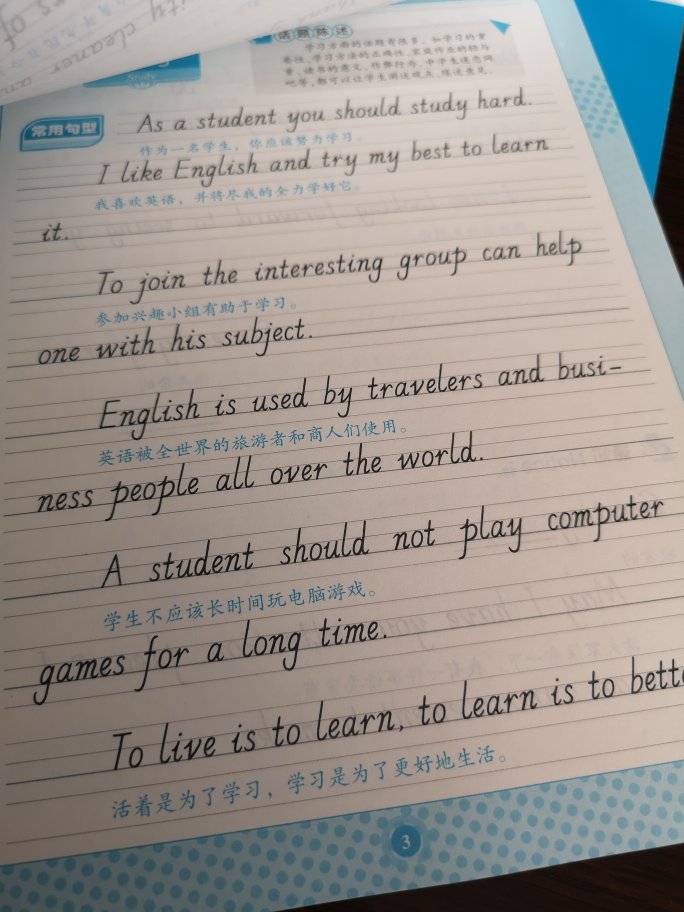 ity cleaner an
s of
话题陈述
学习方面的话题有很多，如学习的重
要性、学习方法的正确性、家庭作业的轻与
重、读书的意义、作弊行为、中学生迷恋网
吧等，都可以让学生阐述观点，陈述意见。
Study
常用句型
As a student you should study hard.
作为一名学生，你应该努力学习。
I like English and try my best to learn
我喜欢英语，并将尽我的全力学好它。
it.
To join the interesting group can help
参加兴趣小组有助于学习。
one with his subject.
English is used by travelers and busi-
英语被全世界的旅游者和商人们使用。
ness people all over the world.
A student should not play computer
学生不应该长时间玩电脑游戏。
games for a long time.
To live is to learn, to learn is to bett
活着是为了学习，学习是为了更好地生活。
3